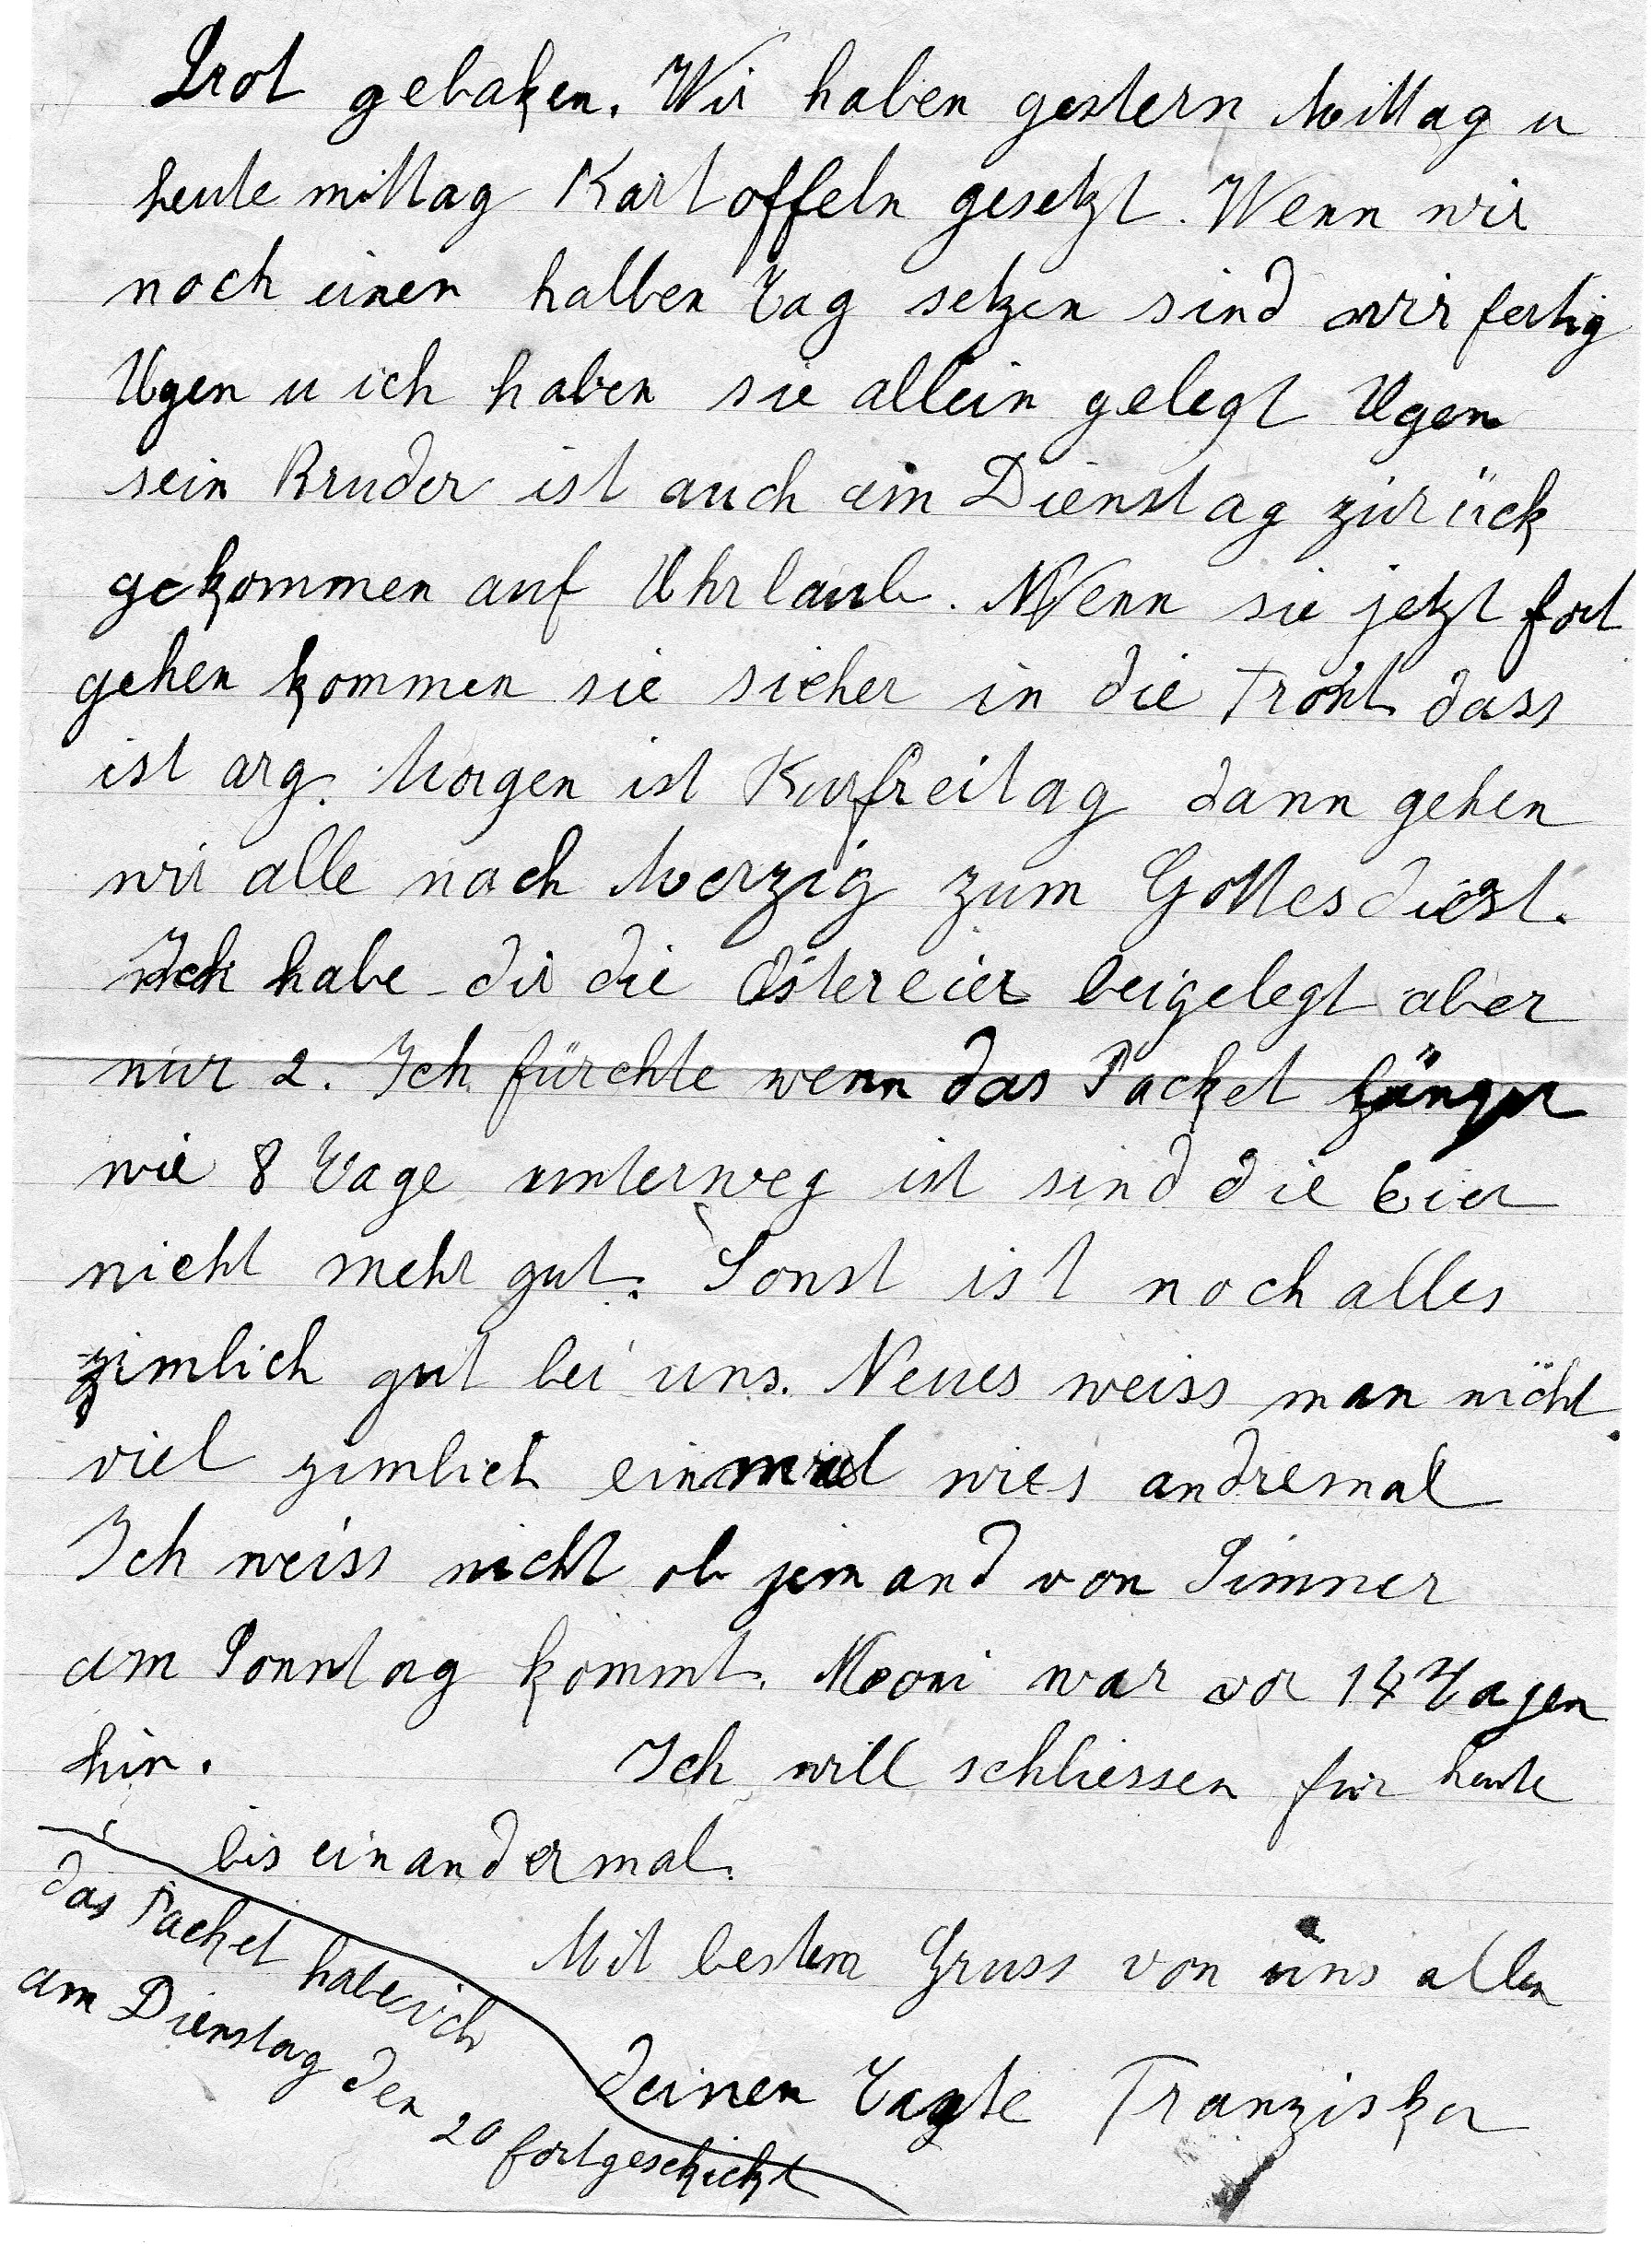 Brot gebaken. Wir haben gestern Mittag u
heute mittag Kartoffeln gesetzt. Wenn wir
noch einen halben Tag setzen sind wir fertig
Ugen u ich haben sie allein gelegt Ugen
sein Bruder ist auch am Dienstag zürück
gekommen auf Uhrlaub. Wenn sie jetzt fort
gehen kommen sie sicher in die Front dass
ist arg. Morgen ist Karfreitag dann gehen
wir alle nach Merzig zum Gottesdiest.
Ich habe dir die Ostereier beigelegt aber
nur 2. Ich fürchte wenn das Packet länger
wie 8 Tage unterweg ist sind die Eier
nicht mehr gut. Sonst ist noch alles
zimlich gut bei uns. Neues weiss man nicht
viel zimlich einmal wies andremal
Ich weiss nicht ob jemand von Simner
am Sonntag kommt. war vor 14 Tagen
hin. Ich will schliessen für heute
bis einandermal.
Mit bestem Gruss von uns allen
deinen Tante Franziska
das Packet habe ich
am Dienstag den 20 fortgeschickt